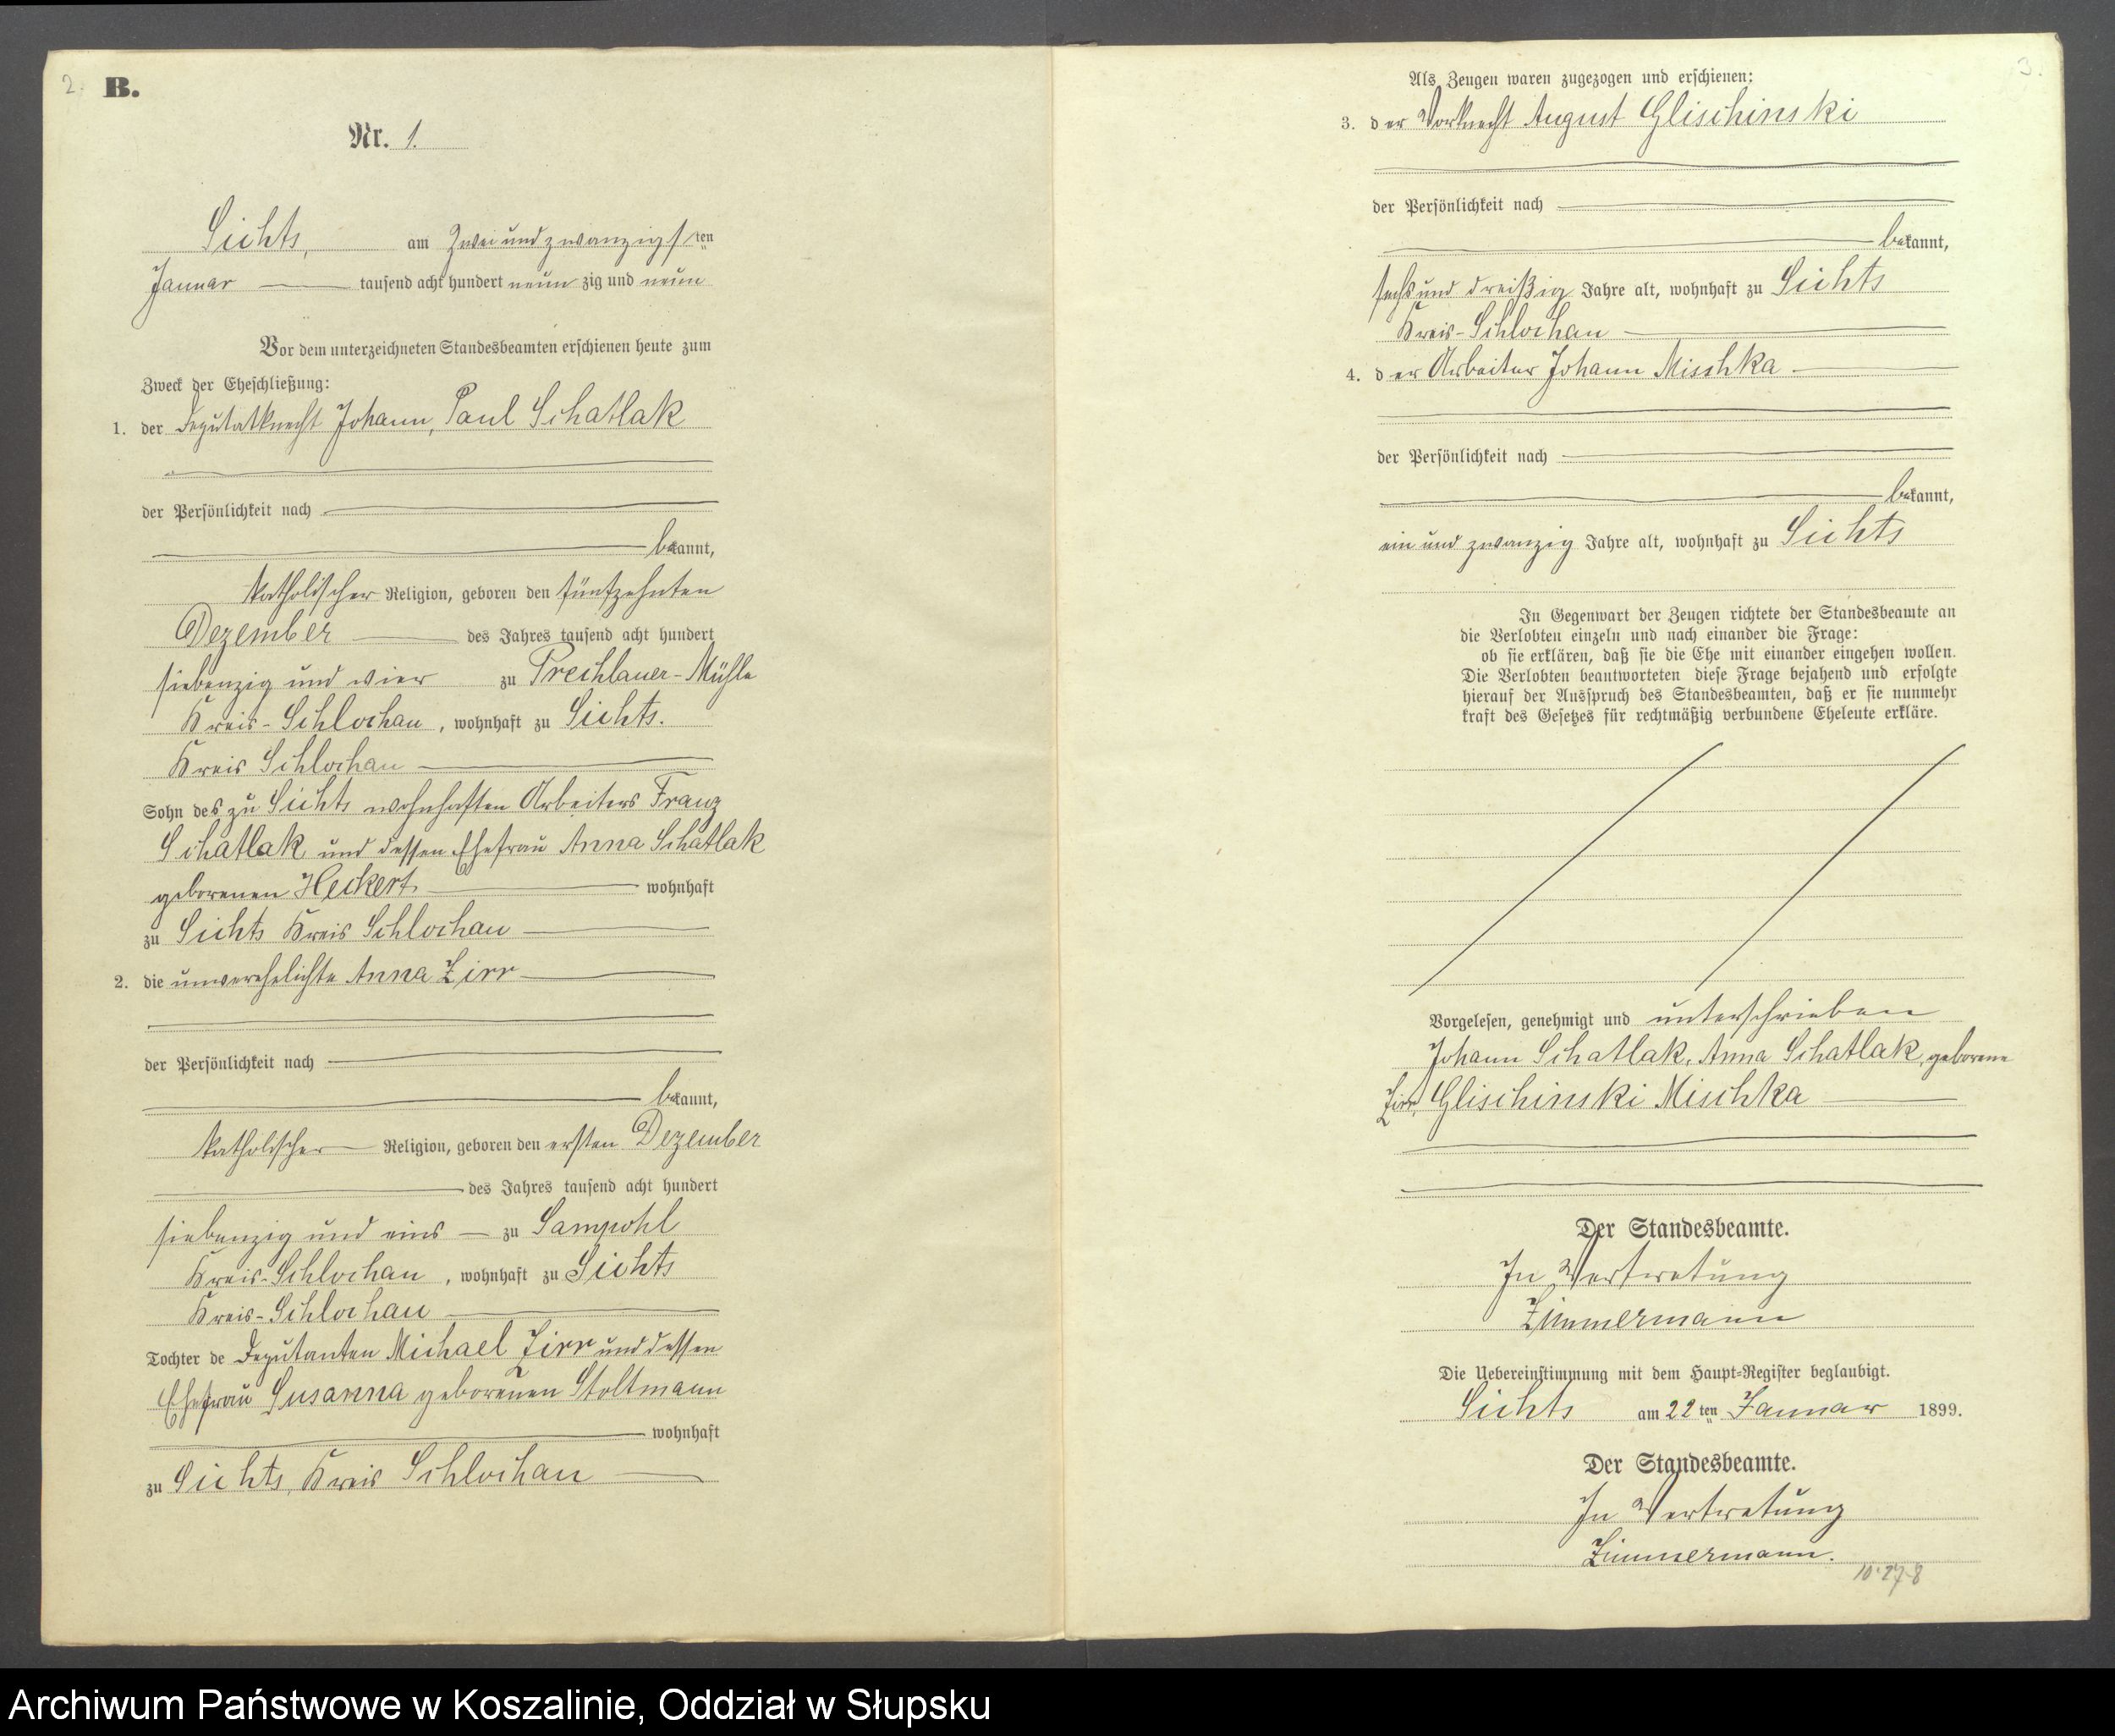 2.
B.
Nr. 1.
Sichts, am Zwei und zwanzigsten
Januar tausend acht hundert neunzig und neun
Vor dem unterzeichneten Standesbeamten erschienen heute zum
Zweck der Eheschließung:
1. der Deputatknecht Johann, Paul Schatlak
der Persönlichkeit nach
bekannt,
katholischer Religion, geboren den fünfzehnten
Dezember des Jahres tausend acht hundert
siebenzig und vier zu Prechlauer-Mühle
Kreis-Schlochau, wohnhaft zu Sichts.
Kreis Schlochau
Sohn des zu Sichts wohnhaften Arbeiters Franz
Schatlak und dessen Ehefrau Anna Schatlak
geborenen Heckert wohnhaft
zu Sichts Kreis Schlochau
2. die unverehelichte Anna Zirr
der Persönlichkeit nach
bekannt,
katholischer Religion, geboren den ersten Dezember
des Jahres tausend acht hundert
siebenzig und eins zu Sampohl
Kreis-Schlochau, wohnhaft zu Sichts
Kreis-Schlochau
Tochter de Deputanten Michael Zirr und dessen
Ehefrau Susanna geborenen Stoltmann
wohnhaft
zu Sichts, Kreis Schlochau
3.
Als Zeugen waren zugezogen und erschienen:
3. der Vorknecht August Glischinski
der Persönlichkeit nach
bekannt,
sechs und dreißig Jahre alt, wohnhaft zu Sichts
Kreis-Schlochau
4. der Arbeiter Johann Mischka
der Persönlichkeit nach
bekannt,
ein und zwanzig Jahre alt, wohnhaft zu Sichts
In Gegenwart der Zeugen richtete der Standesbeamte an
die Verlobten einzeln und nach einander die Frage:
ob sie erklären, daß sie die Ehe mit einander eingehen wollen.
Die Verlobten beantworteten diese Frage bejahend und erfolgte
hierauf der Ausspruch des Standesbeamten, daß er sie nunmehr
kraft des Gesetzes für rechtmäßig verbundene Eheleute erkläre.
Vorgelesen, genehmigt und unterschrieben
Johann Schatlak, Anna Schatlak, geborene
Zirr, Glischinski Mischka
Der Standesbeamte.
In Vertretung
Zimmermann
Die Uebereinstimmung mit dem Haupt-Register beglaubigt.
Sichts am 22ten Januar 1899.
Der Standesbeamte.
In Vertretung
Zimmermann.
10·27·8
Archiwum Państwowe w Koszalinie, Oddział w Słupsku